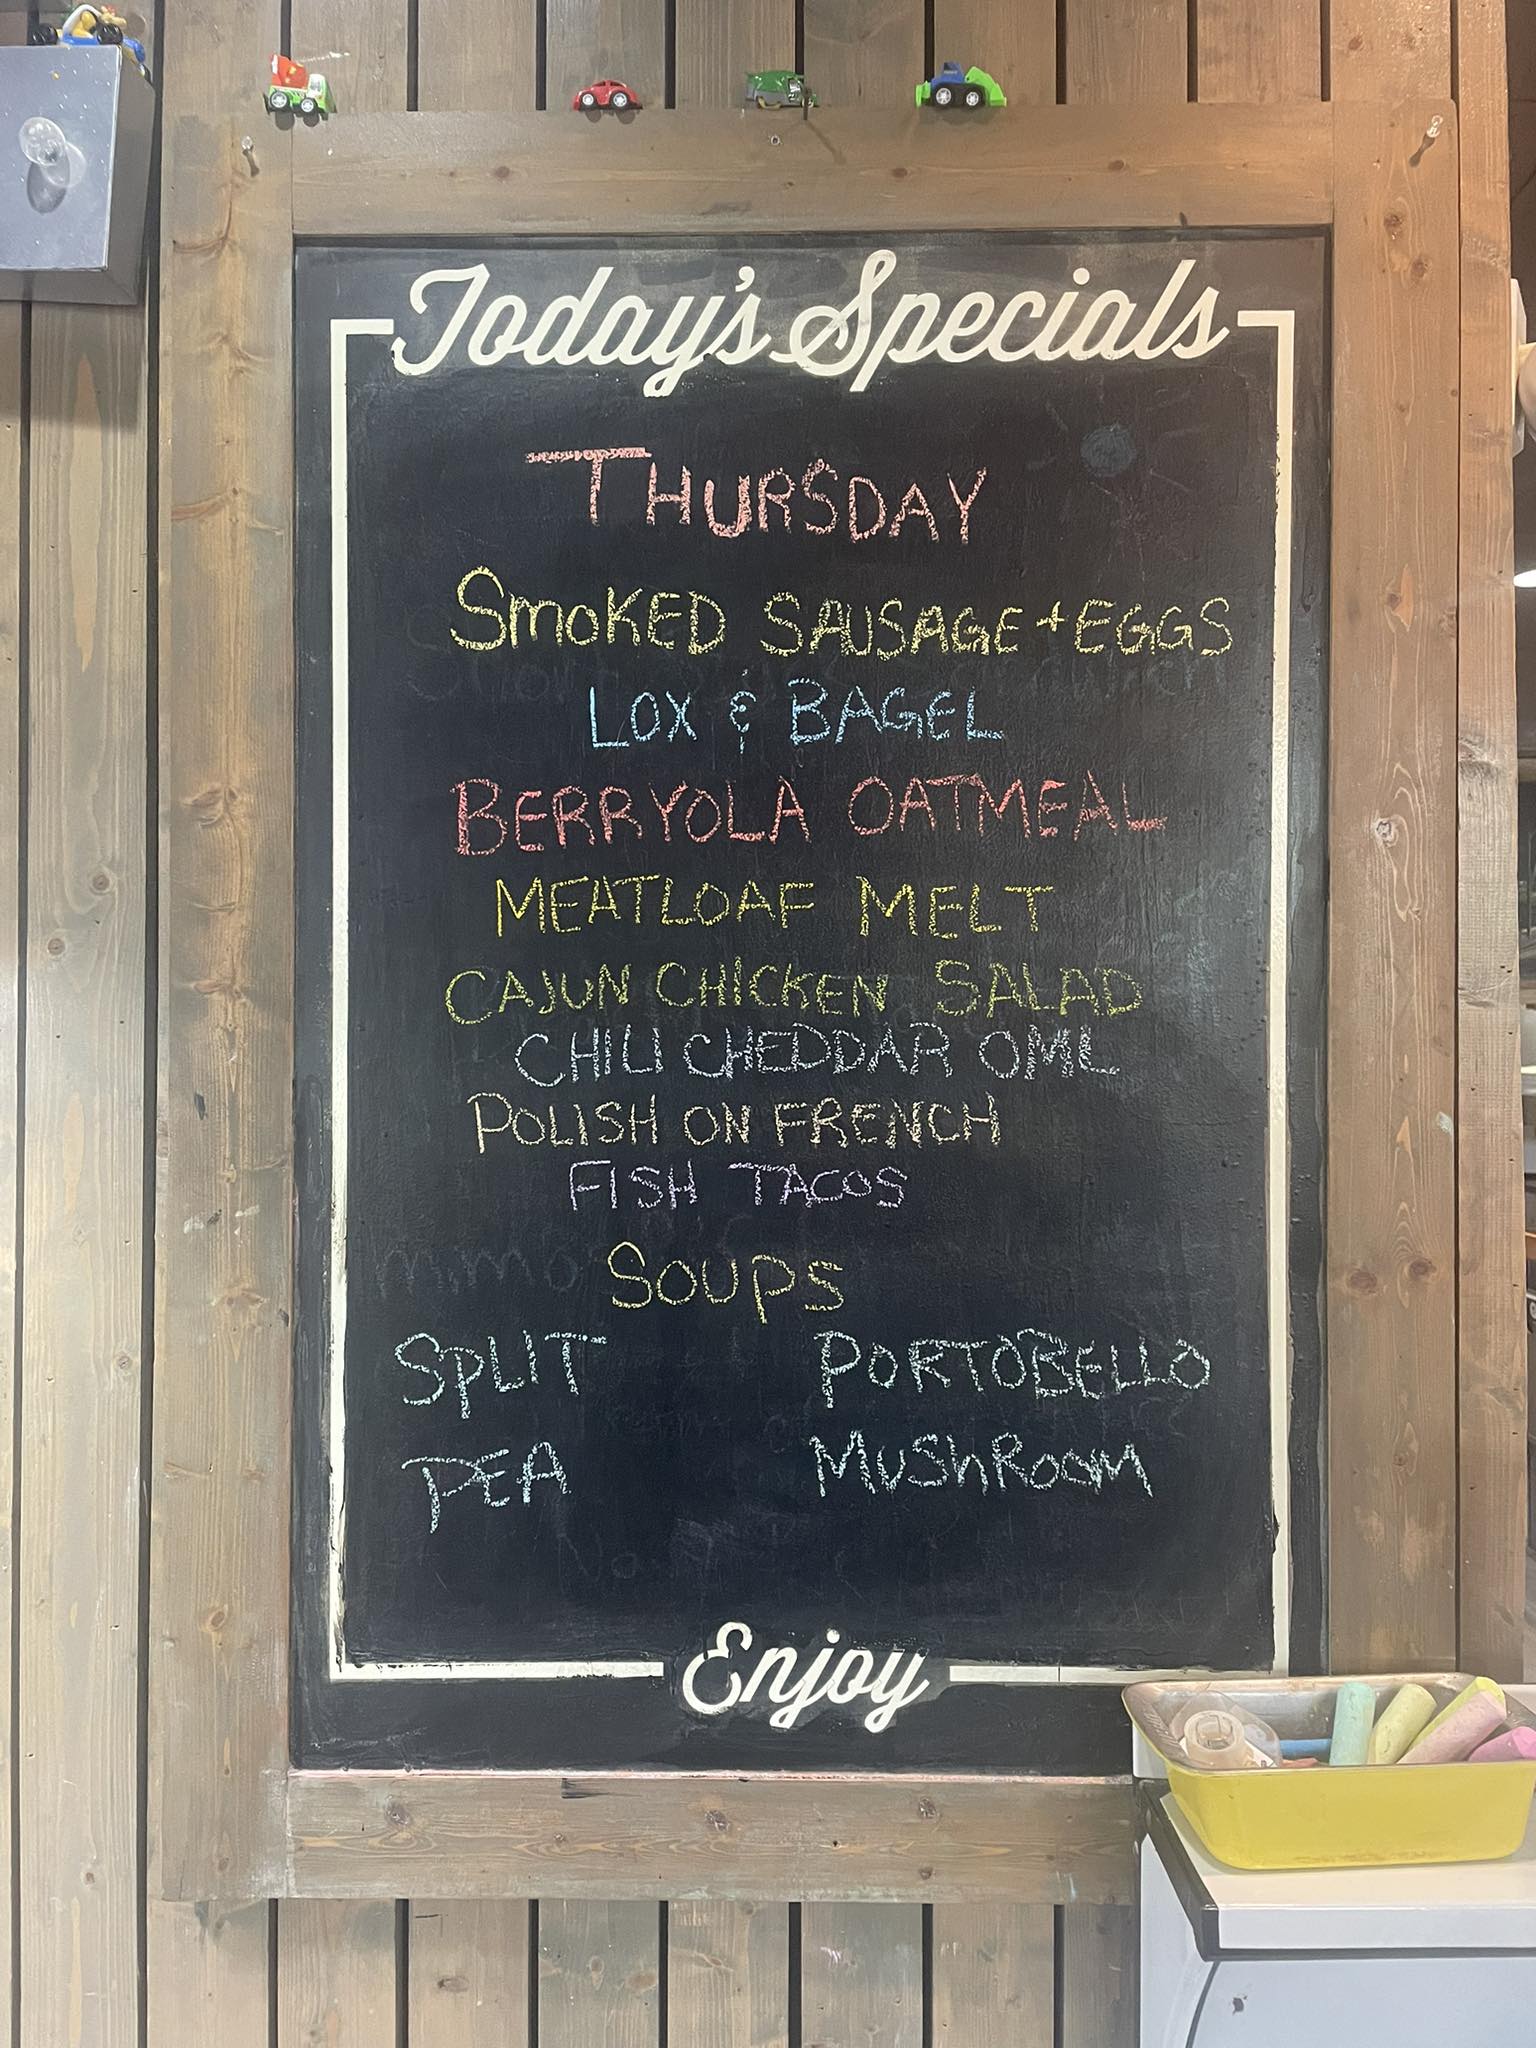 Today's Specials
THURSDAY
SMOKED SAUSAGE + EGGS
LOX & BAGEL
BERRYOLA OATMEAL
MEATLOAF MELT
CAJUN CHICKEN SALAD
CHILI CHEDDAR OML
POLISH ON FRENCH
FISH TACOS
SOUPS
SPLIT PEA
PORTOBELLO MUSHROOM
Enjoy